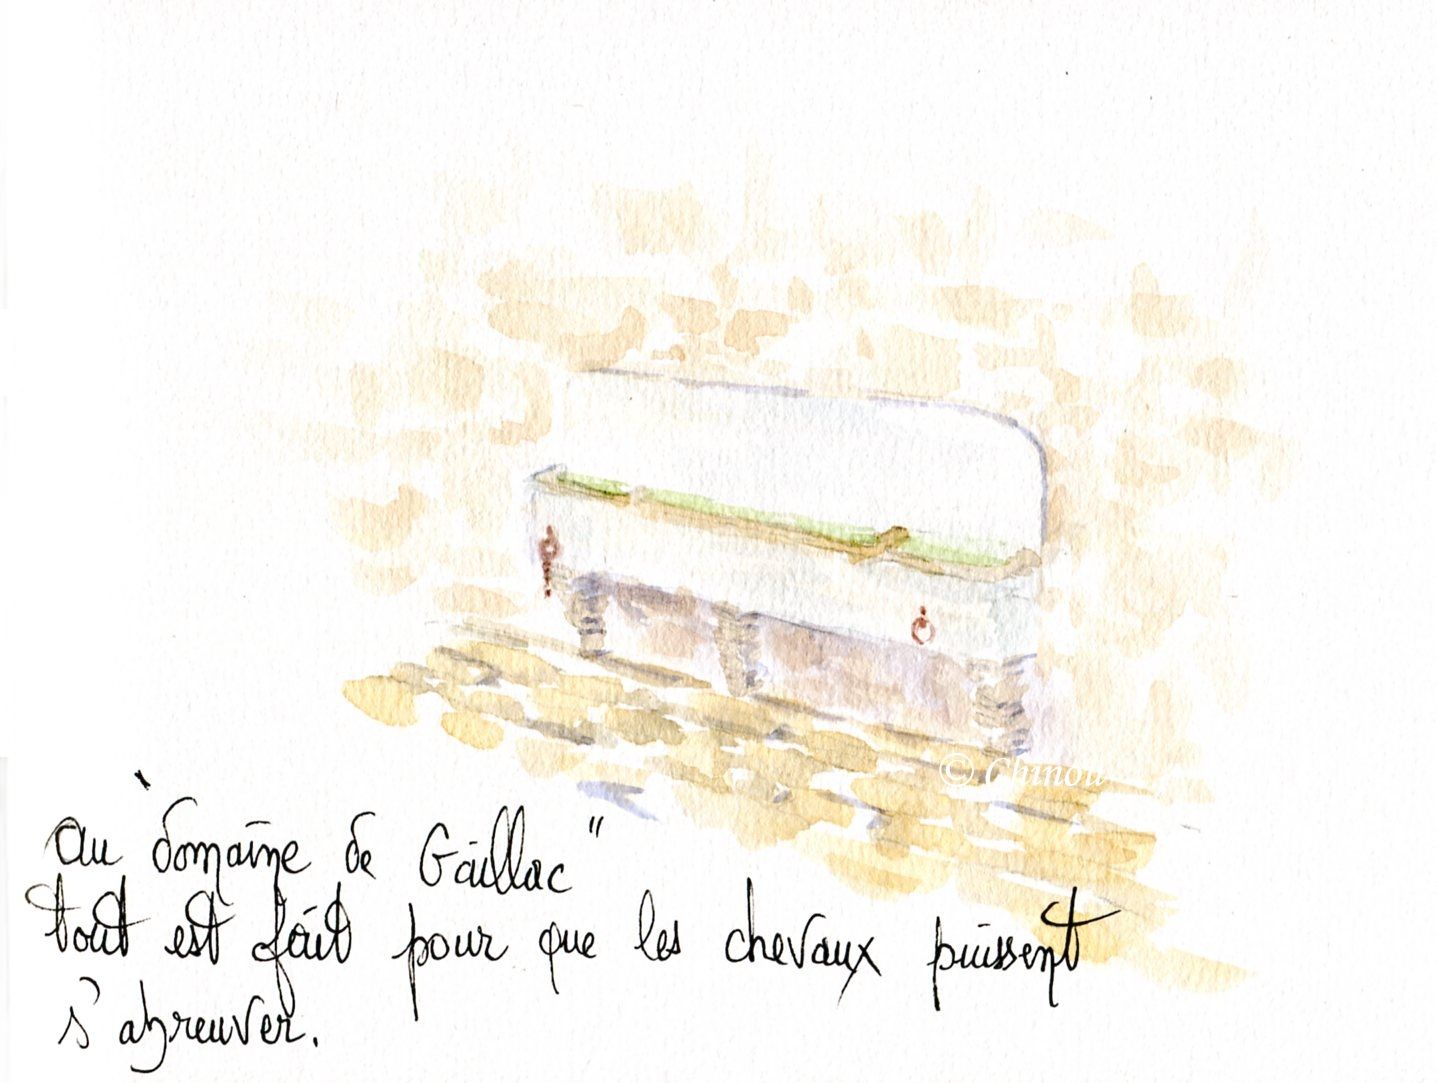 © Chinou
au "domaine de Gaillac"
tout est fait pour que les chevaux puissent
s'abreuver.